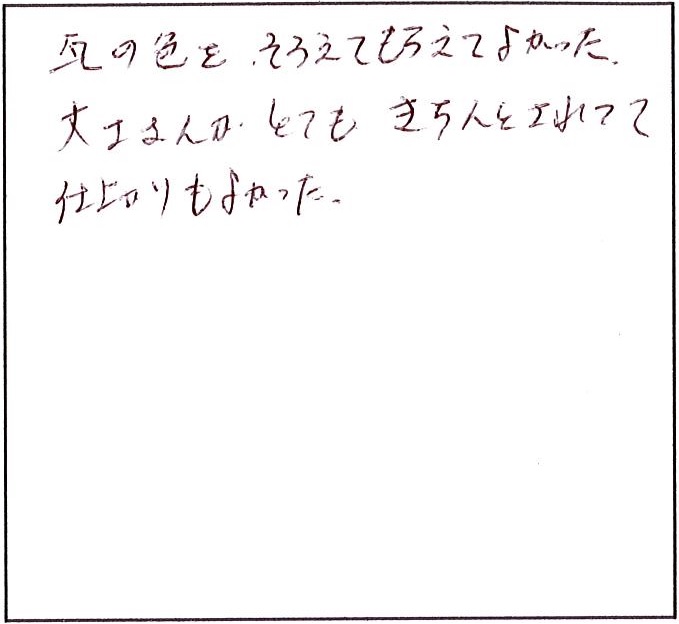 瓦の色を、そろえてもらえてよかった。
大工さんが とても きちんとされてて
仕上がりもよかった。